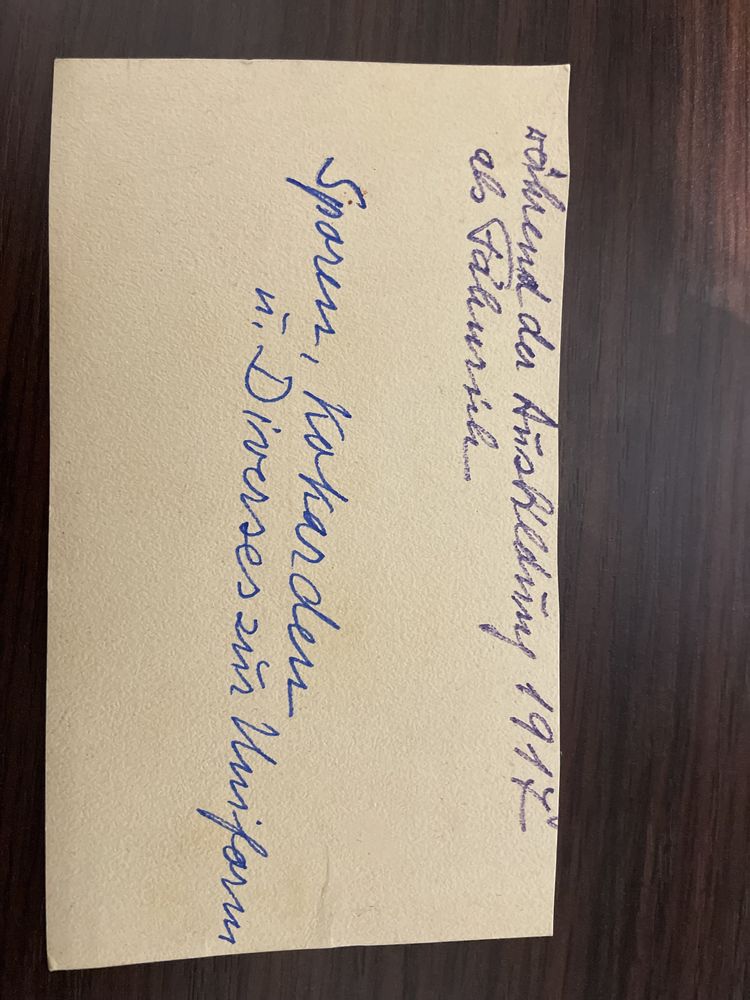 während der Ausbildung 1917
als Fähnrich
Sporen, Kokarden
u. Diverses zur Uniform